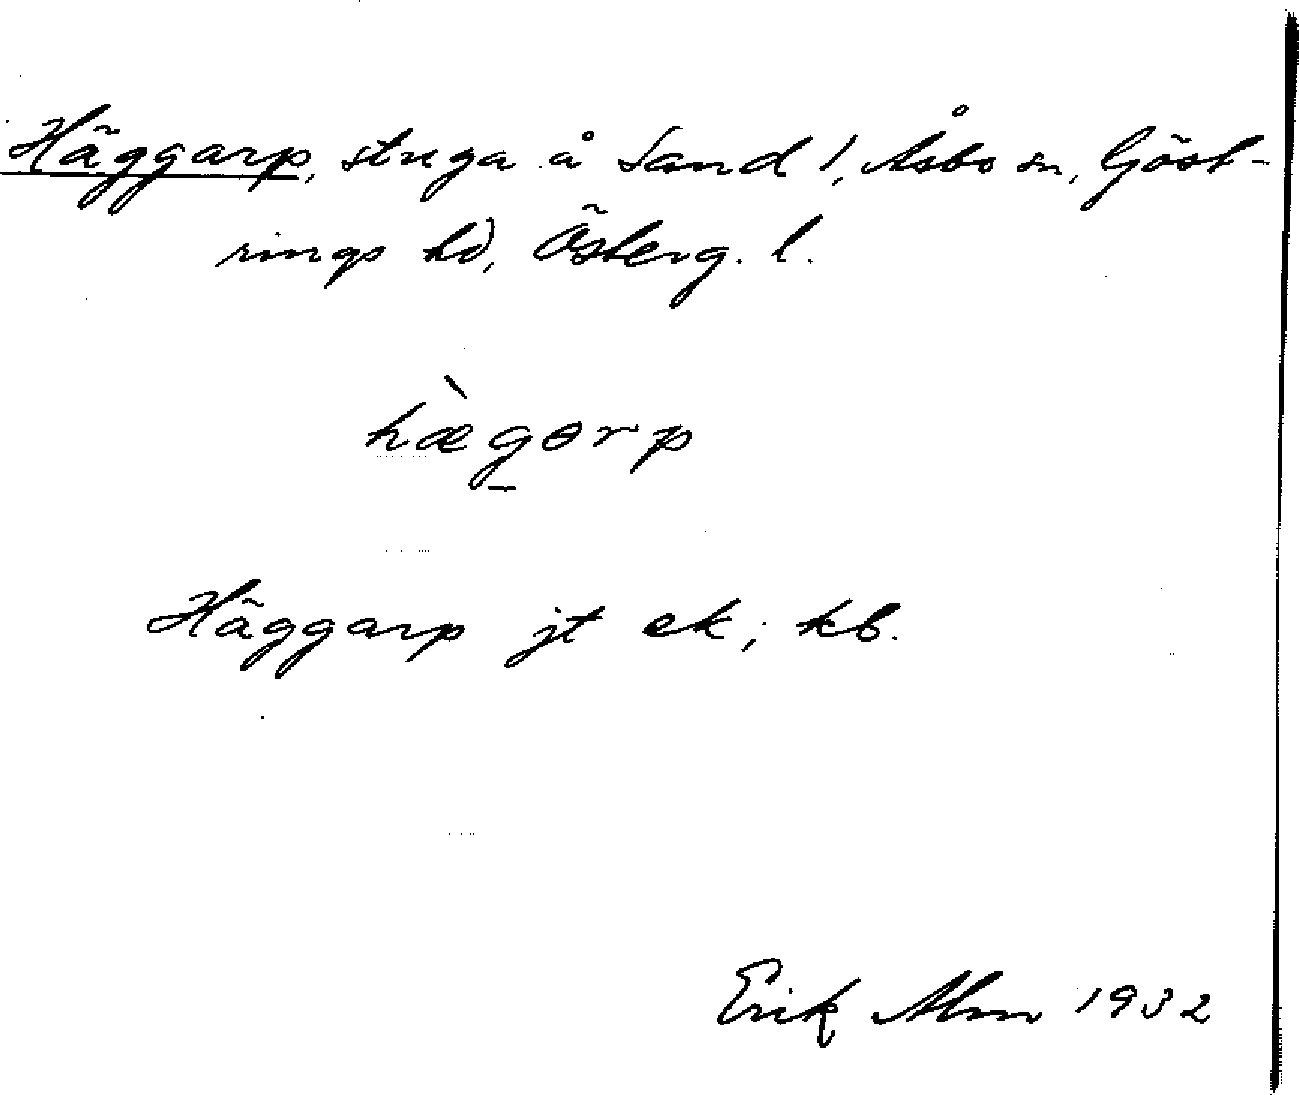 Häggarp, stuga å Sand 1, Åsbo sn, Göst-
rings hd, Österg. l.
hæ̀g̱ɵrp
Häggarp jt ek; kb.
Erik Alm 1932